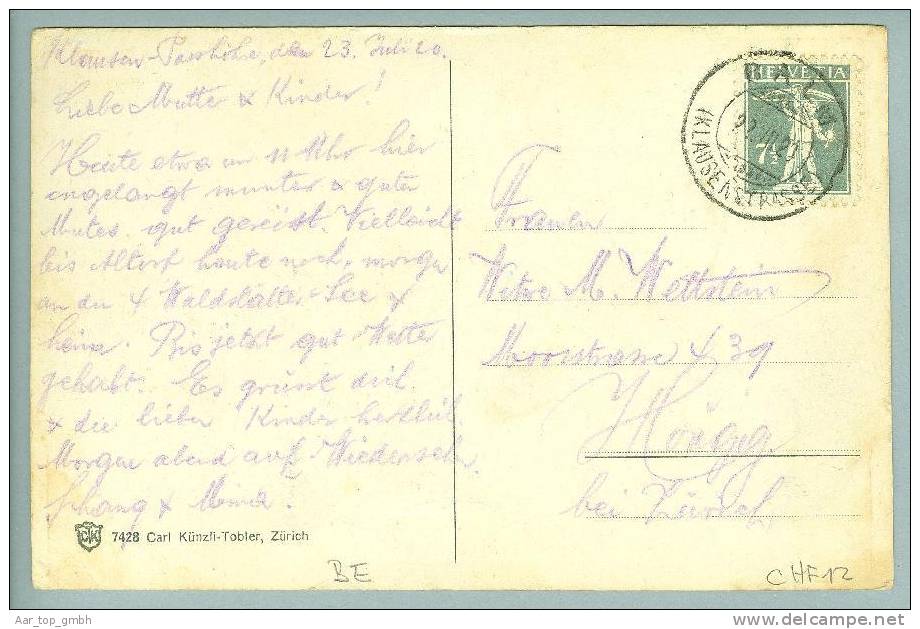 Klausen-Passhöhe, den 23. Juli 20.
Liebe Mutter & Kinder!
Heute etwa um 11 Uhr hier
angelangt munter & guten
Mutes. gut gereist. Vielleicht
bis Altorf heute noch, morgen
an den 4 Waldstätter-See &
heim. Bis jetzt gut Wetter
gehabt. Es grüsst dich
& die lieben Kinder herzlich.
Morgen abend auf Wiedersehn
Schang &
HELVETIA
7½
(KLAUSENSTRASSE)
Frauen
Witwe M. Wettstein
Moosstrasse 439
Höngg
bei Zürich
CTK 7428 Carl Künzli-Tobler, Zürich
BE
CHF12
Aar_top_gmbh
www.delcampe.net